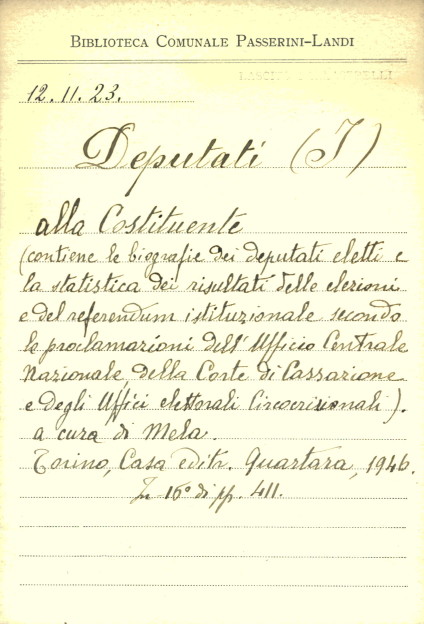 BIBLIOTECA COMUNALE PASSERINI-LANDI
12.11.23.
Deputati (I)
alla Costituente
(contiene le biografie dei deputati eletti e
la statistica dei risultati delle elezioni
e del referendum istituzionale secondo
le proclamazioni dell'Ufficio Centrale
Nazionale, della Corte di Cassazione
e degli Uffici elettorali Circoscrizionali).
a cura di Mela.
Torino, Casa editr. Quartara, 1946.
In 16° di pp. 411.